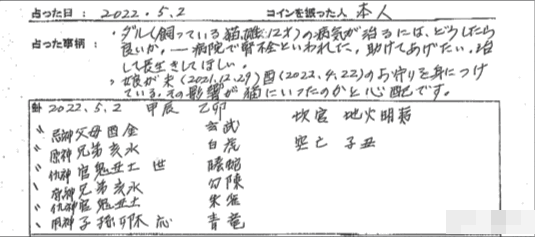 占った日： 2022.5.2 コインを振った人 本人
占った事柄： ・ダル(飼っている猫、雌、12才)の病気が治るには、どうしたら
良いか。一病院で腎不全といわれた。助けてあげたい。治
して長生きしてほしい。
・娘が未(2021.12.29)酉(2022.4.22)のお守りを身につけ
ている。その影響が猫にいったのかと心配です。
2022.5.2 甲辰 乙卯 坎宮 地火明夷
〃 忌神 父母酉金 玄武 空亡 子丑
〃 原神 兄弟亥水 白虎
〃 仇神 官鬼丑土 世 騰蛇
〃 原神 兄弟亥水 勾陳
〃 仇神 官鬼丑土 朱雀
〃 用神 子孫卯木 応 青竜